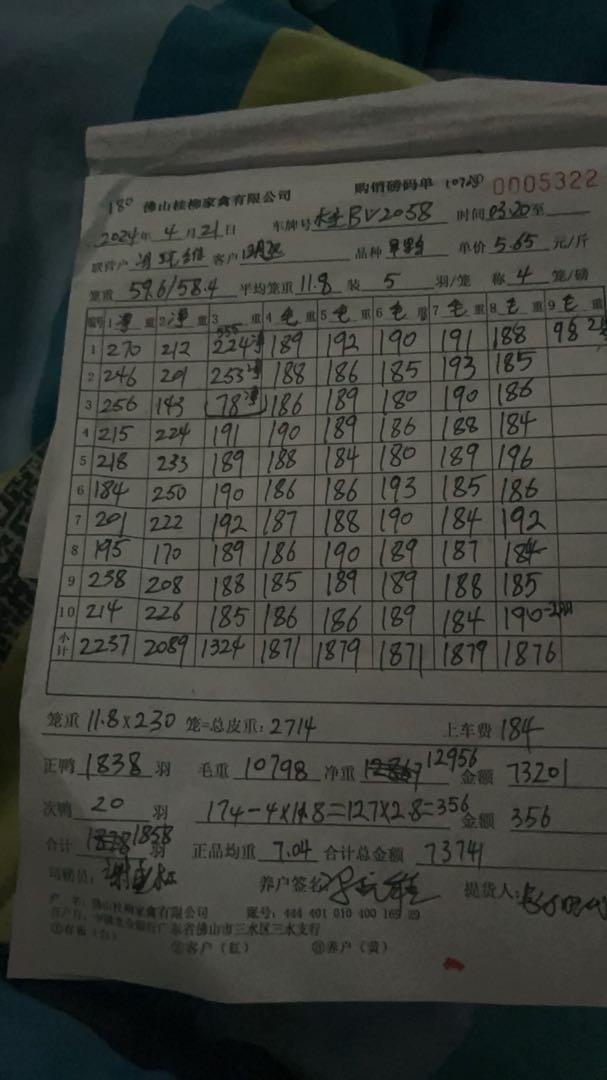 180 佛山桂柳家禽有限公司 购销磅码单 0005322
2024年 4月 21日 车牌号 BV2058 时间 03.20 至
联营户 客户 品种 单价 5.65 元/斤
笼重 59.6/58.4 平均笼重 11.8 装 5 羽/笼 称 4 笼/磅
编号 1 净 重 2 净 重 3 重 4 毛 重 5 毛 重 6 毛 重 7 毛 重 8 毛 重 9 毛 重
555
1 270 212 224净 189 192 190 191 188 98
2 246 201 253净 188 186 185 193 185
3 256 143 78净 186 189 180 190 186
4 215 224 191 190 189 186 188 184
5 218 233 189 188 184 180 189 196
6 184 250 190 186 186 193 185 186
7 201 222 192 187 188 190 184 192
8 195 170 189 186 190 189 187 184
9 238 208 188 185 189 189 188 185
10 214 226 185 186 186 189 184 190
小计 2237 2089 1324 1871 1879 1871 1879 1876
笼重 11.8×230 笼=总皮重: 2714 上车费 184
正鸭 1838 羽 毛重 10798 净重 12956 金额 73201
次鸭 20 羽 174-4×11.8=127×2.8=356 金额 356
合计 1858 羽 正品均重 7.04 合计总金额 73741
司磅员: 养户签名: 提货人:
户 名: 佛山桂柳家禽有限公司 账号: 444 401 010 400 165 29
广东省佛山市三水区三水支行
②客户(红) ③养户(黄)